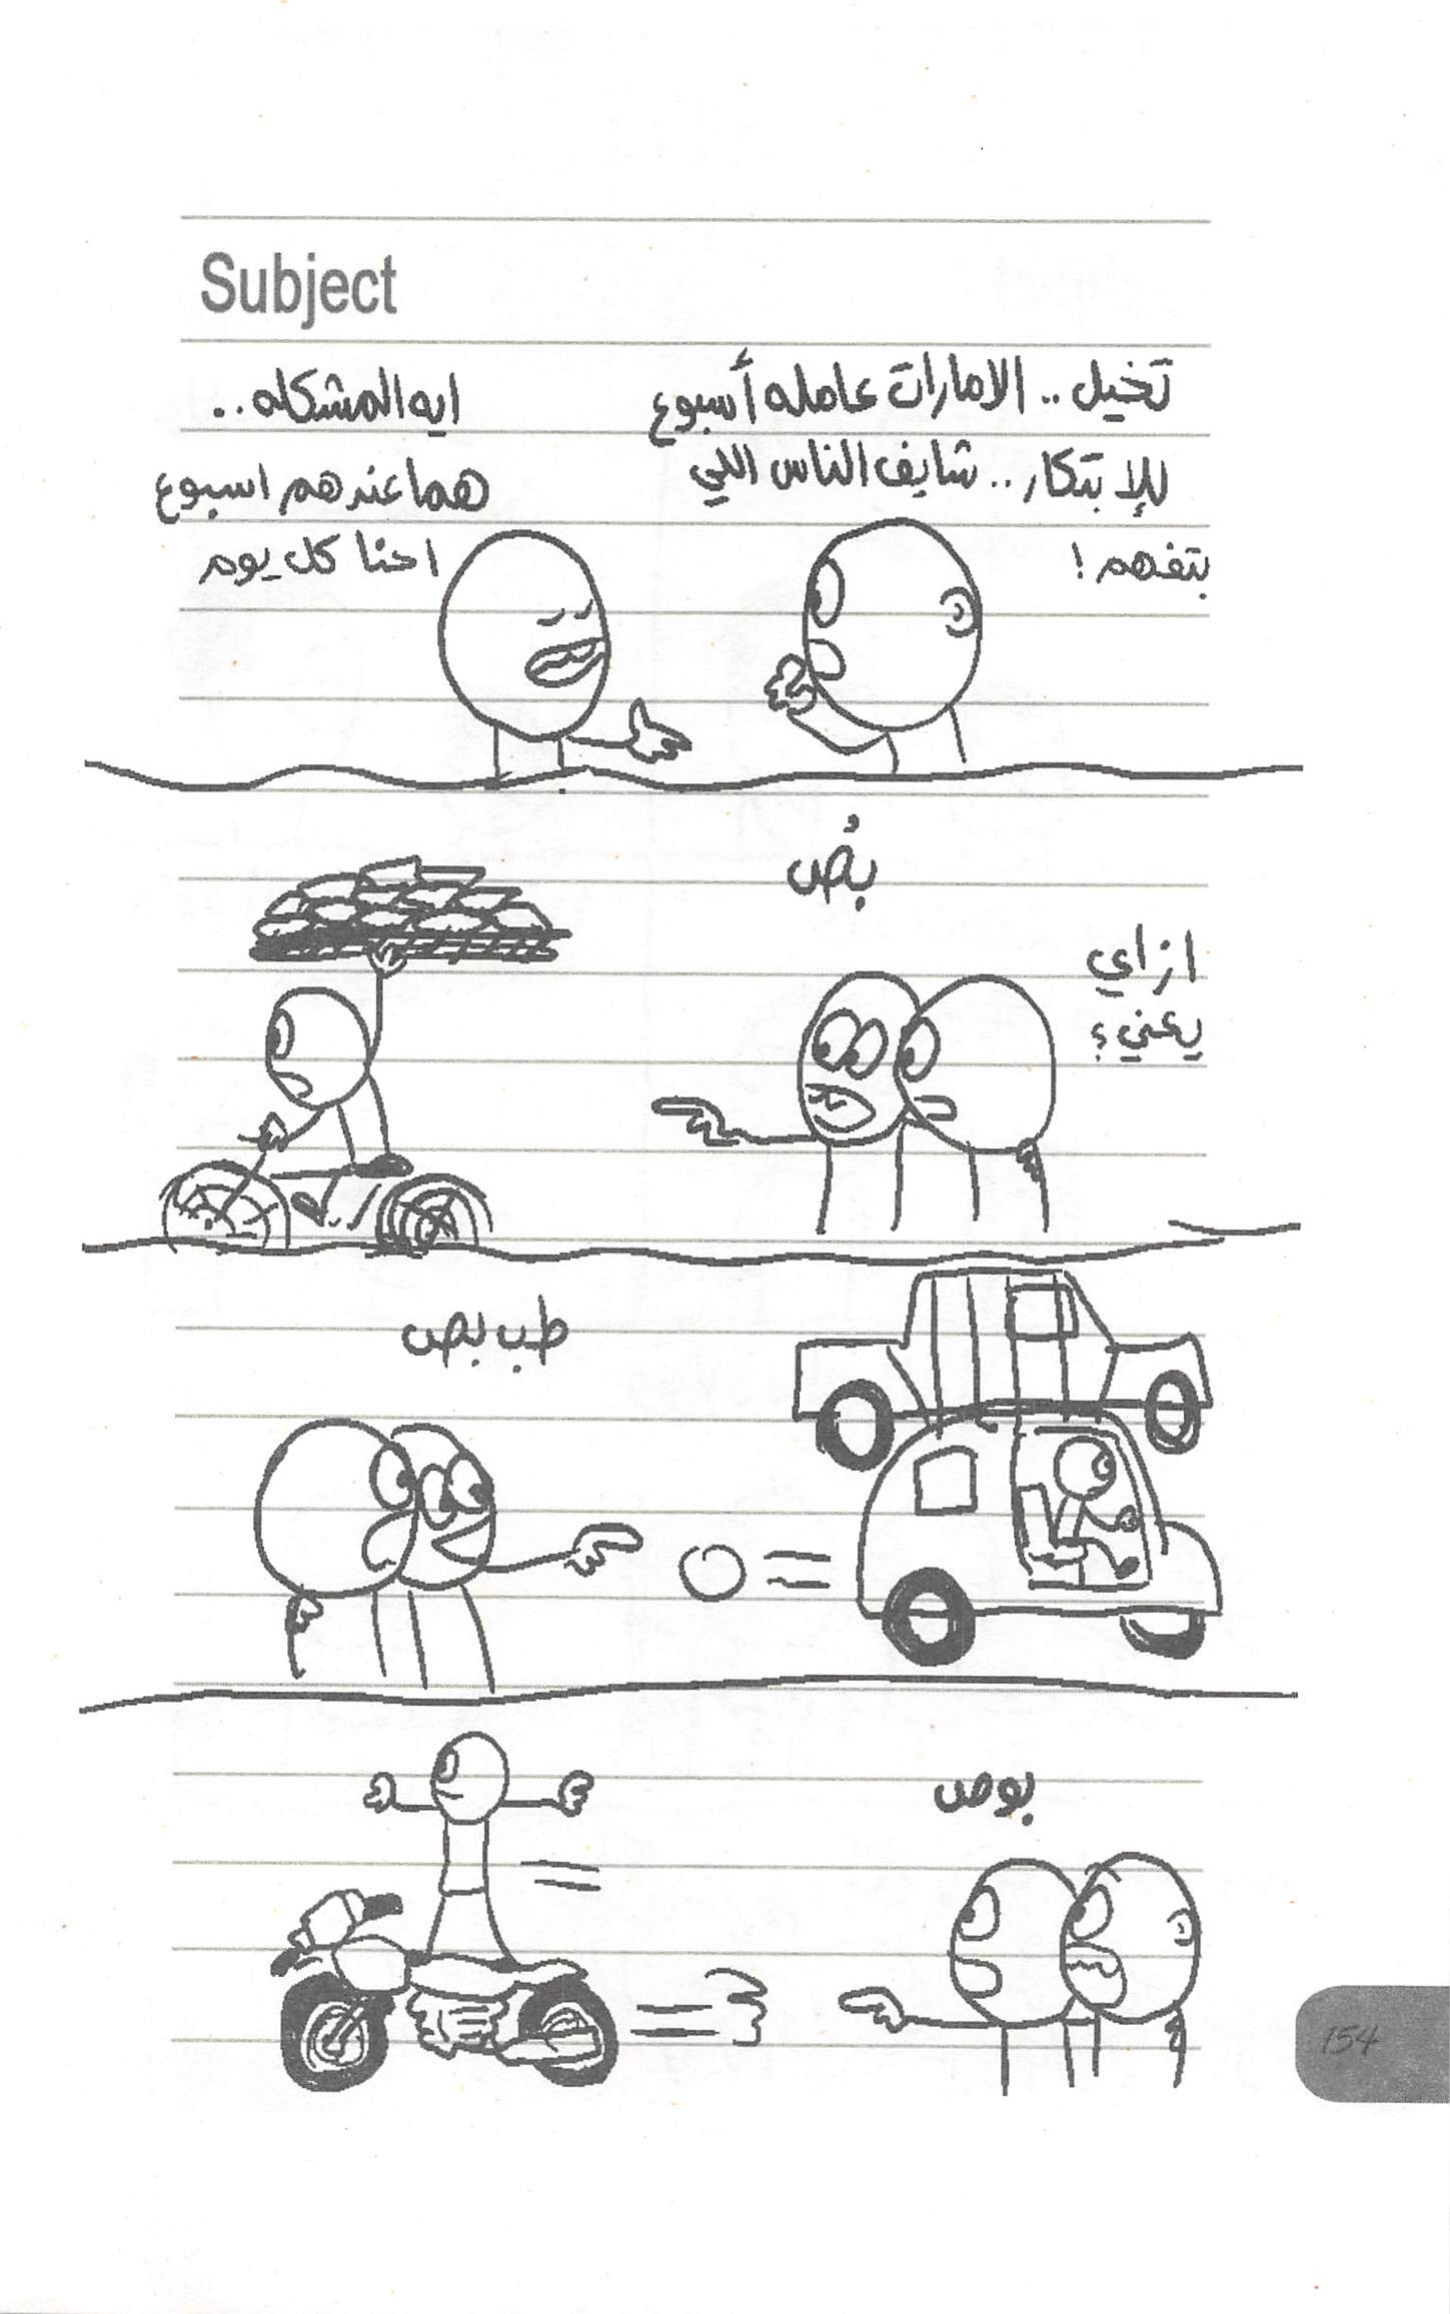 Subject
تخيل .. الامارات عامله أسبوع
للإبتكار .. شايف الناس اللي
بتفهم !
ايه المشكله ..
هما عندهم اسبوع
احنا كل يوم
بُص
ازاي
يعني؟
طب بص
بوص
154